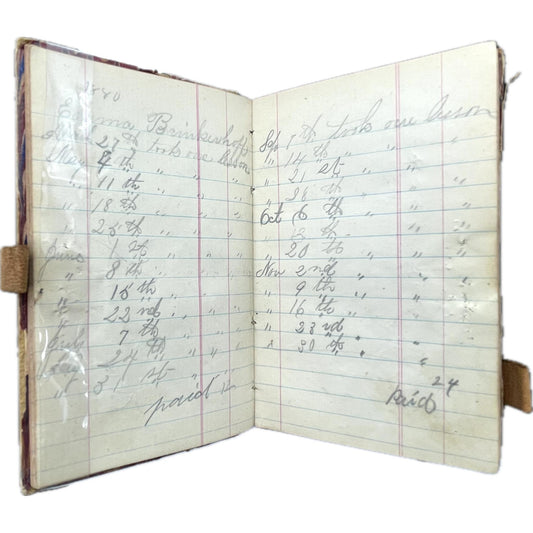 1880
Emma Brinkerhoff
April 27th took one lesson
May 4th " " "
" 11th " " "
" 18th " " "
" 25th " " "
June 1st " " "
" 8th " " "
" 15th " " "
" 22nd " " "
July 7th " "
Aug 24th "
" 31st "
paid 12
Sep 7th took one lesson
" 14th " " "
" 21st " " "
" 28th " " "
Oct 6th " " "
" 12th " " "
" 20th " " "
Nov 2nd " " "
" 9th " " "
" 16th " " "
" 23rd " "
" 30th " "
24
Paid